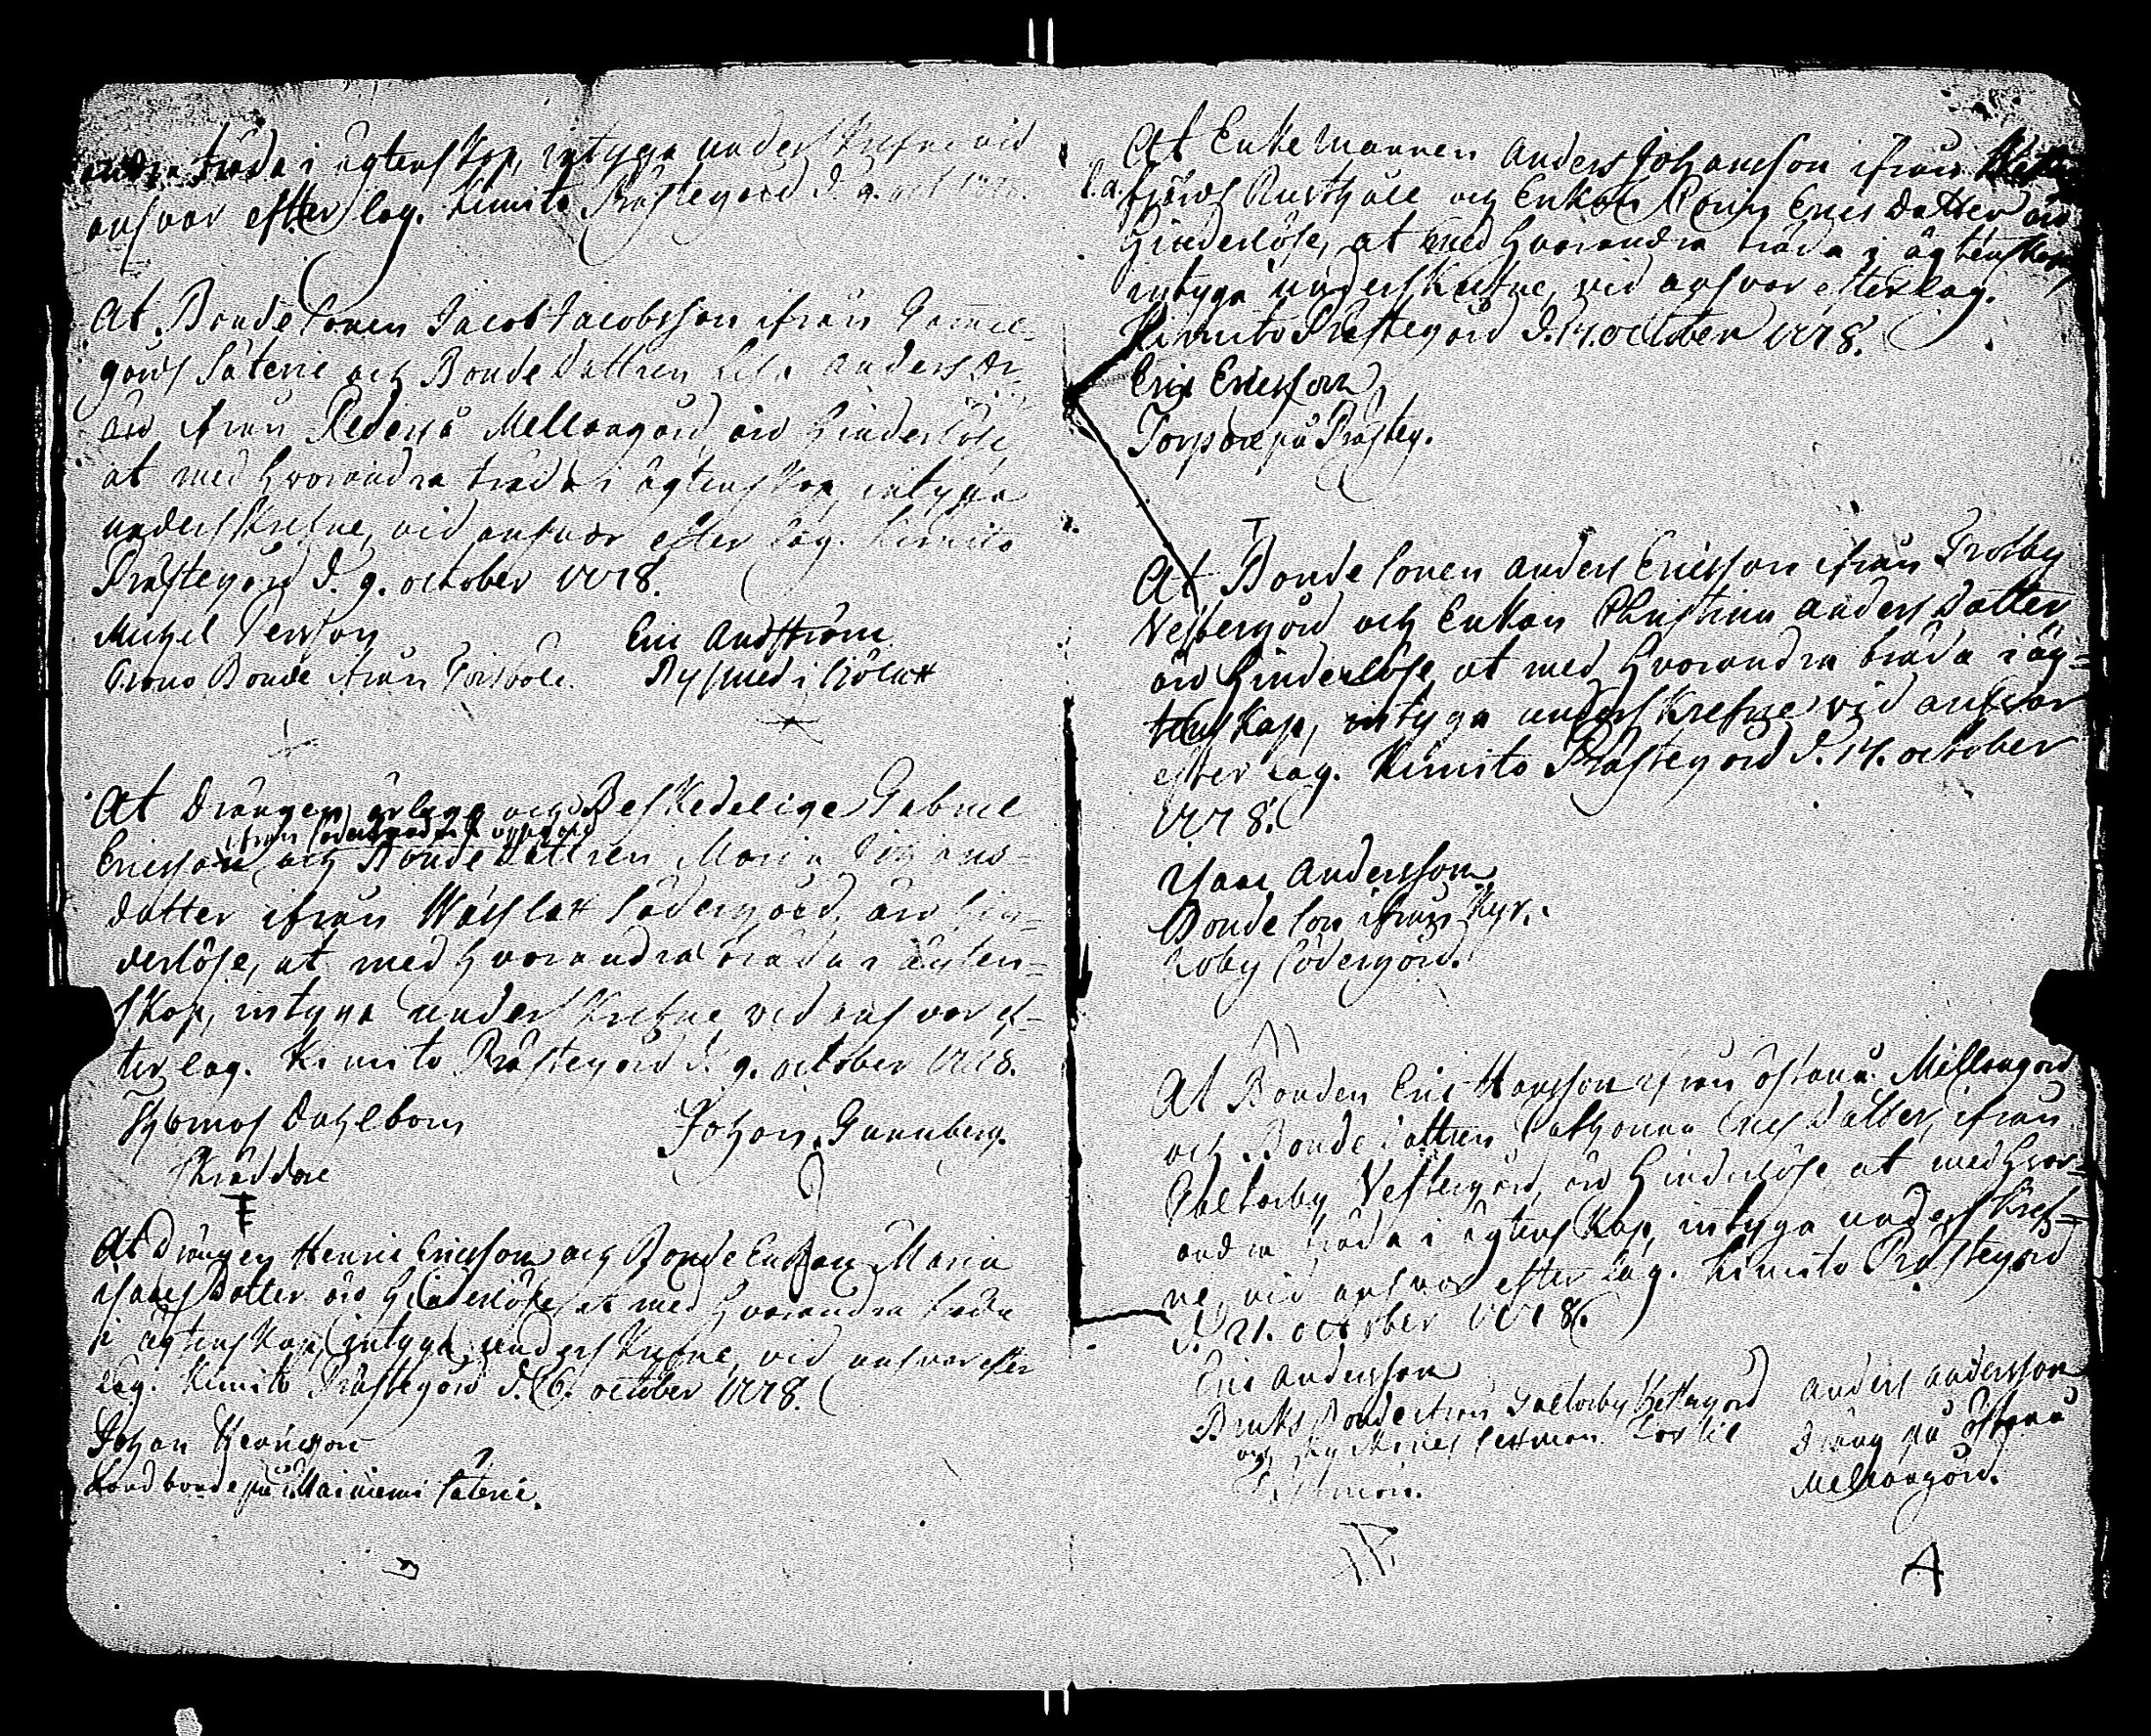 andra träda i ägtenskap, intyga underskrefne vid
answar efter lag. Kimito Prästegård d. 9. oct 1778.
At Bondesonen Jacob Jacobsson ifrån Gammel-
gårds Säterie och Bondedattren Lisa Anders Dr.
äro ifrån Rederså Mellangård, äro hinderlöse,
at med hvarandra träda i ägtenskap, intyga
underskrefne, vid answar efter lag. Kimito
Prästegård d. 9. october 1778.
Michel Persson Eric Andström
Crono Bonde ifrån Rysmed i
At Drängen ärlige och Beskedelige Gabriel
ifrån Södergård
Ericsson och Bondedattren Maria Johans-
datter ifrån Södergård, äro hin-
derlöse, at med hvarandra träda i ägten-
skap, intyga underskrefne vid answar ef-
ter lag. Kimito Prästegård d. 9. october 1778.
Thomas Dahlbom Johan Grannberg.
Skräddare
At Drängen Henric Ericsson och Bonde Enkan Maria
Isaacs Datter äro hinderlöse, at med hvarandra träda
i ägtenskap, intyga underskrefne, vid answar efter
lag. Kimito Prästegård d. 6. october 1778.
Johan Henricsson
Landbonde på Säterie.
At Enkemannen Anders Johansson ifrån
Rusthåll och Enkan Erics Datter äro
hinderlöse, at med hvarandra träda i ägtenskap
intyga underskrefne, vid answar efter lag.
Kimito Prästegård d. 14. october 1778.
Eric Ericsson
Torpare på Prästeg.
At Bondesonen Anders Ericsson ifrån Trotby
Vestergård och Enkan Christina Anders Datter
äro hinderlöse, at med hvarandra träda i äg-
tenskap, intyga underskrefne vid answar
efter lag. Kimito Prästegård d. 14. october
1778.
Isaac Andersson
Bondeson ifrån Kyr-
koby Södergård.
At Bonden Eric Hansson ifrån Östanå Mellangård
och Bonde dattren Catharina Erics Datter, ifrån
Galtarby Vestergård, äro hinderlöse at med hvar-
andra träda i ägtenskap, intyga underskref-
ne, vid answar efter lag. Kimito Prästegård
d. 21. october 1778.
Eric Andersson Anders Andersson
Bruks Bonde ifrån Galtarby Vestergård Dräng på Östanå
och Sexman Mellangård.
A